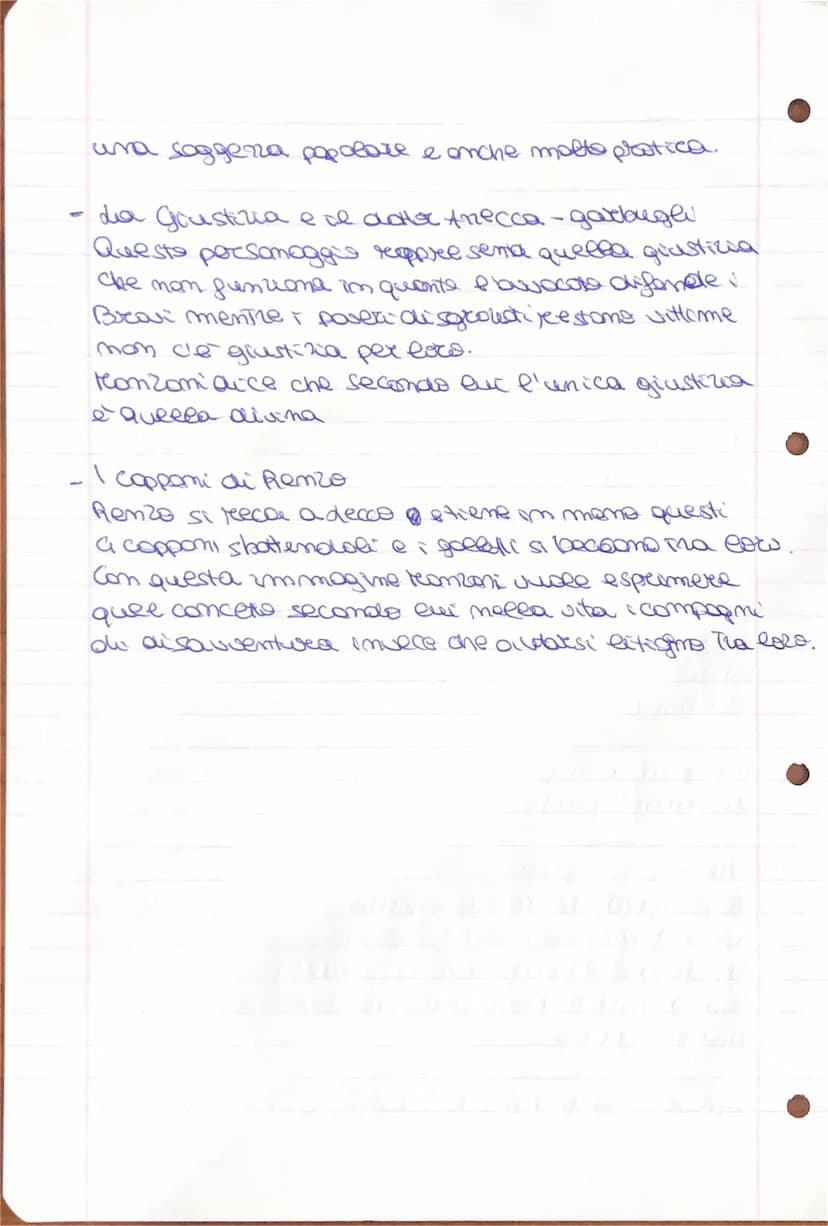 una saggezza popolare e anche molto pratica.
- La Giustizia e il dottor Azecca-garbugli
Questo personaggio rappresenta quella giustizia
che non funziona in quanto l'avvocato difende i
Bravi mentre i poveri disgraziati restano vittime
non c'è giustizia per loro.
Manzoni dice che secondo lui l'unica giustizia
è quella divina
- I capponi di Renzo
Renzo si reca a Lecco e tiene in mano questi
4 capponi sbattendoli e i galletti si beccano tra loro.
Con questa immagine Manzoni vuole esprimere
quel concetto secondo lui nella vita i compagni
di disavventura invece che aiutarsi litigano tra loro.